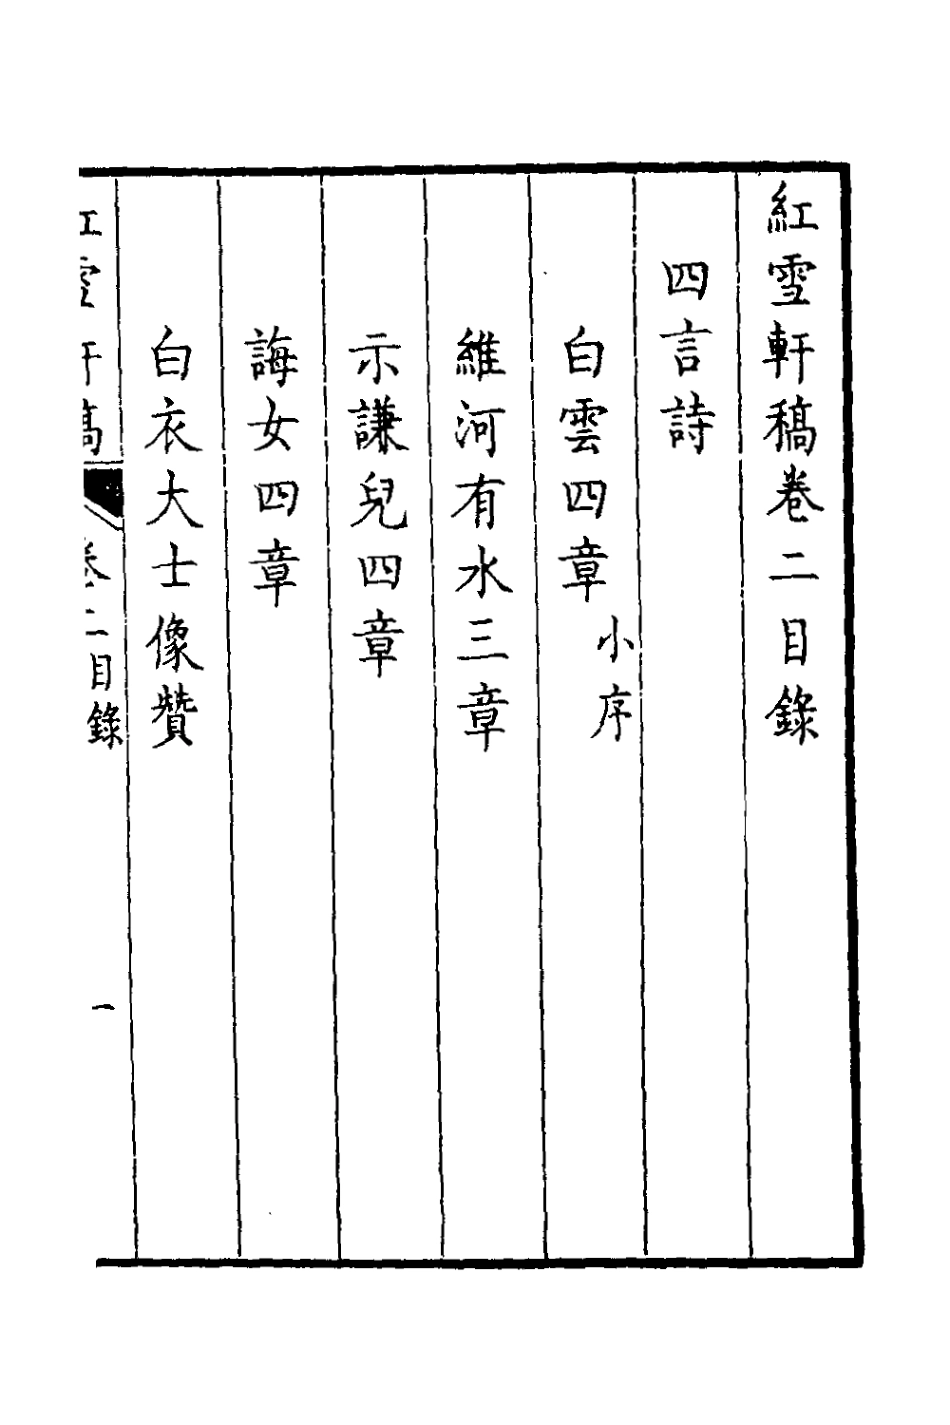 紅雪軒稿卷二目錄
四言詩
白雲四章小序
維河有水三章
示謙兒四章
誨女四章
白衣大士像贊
紅雪軒稿 卷二目錄 一